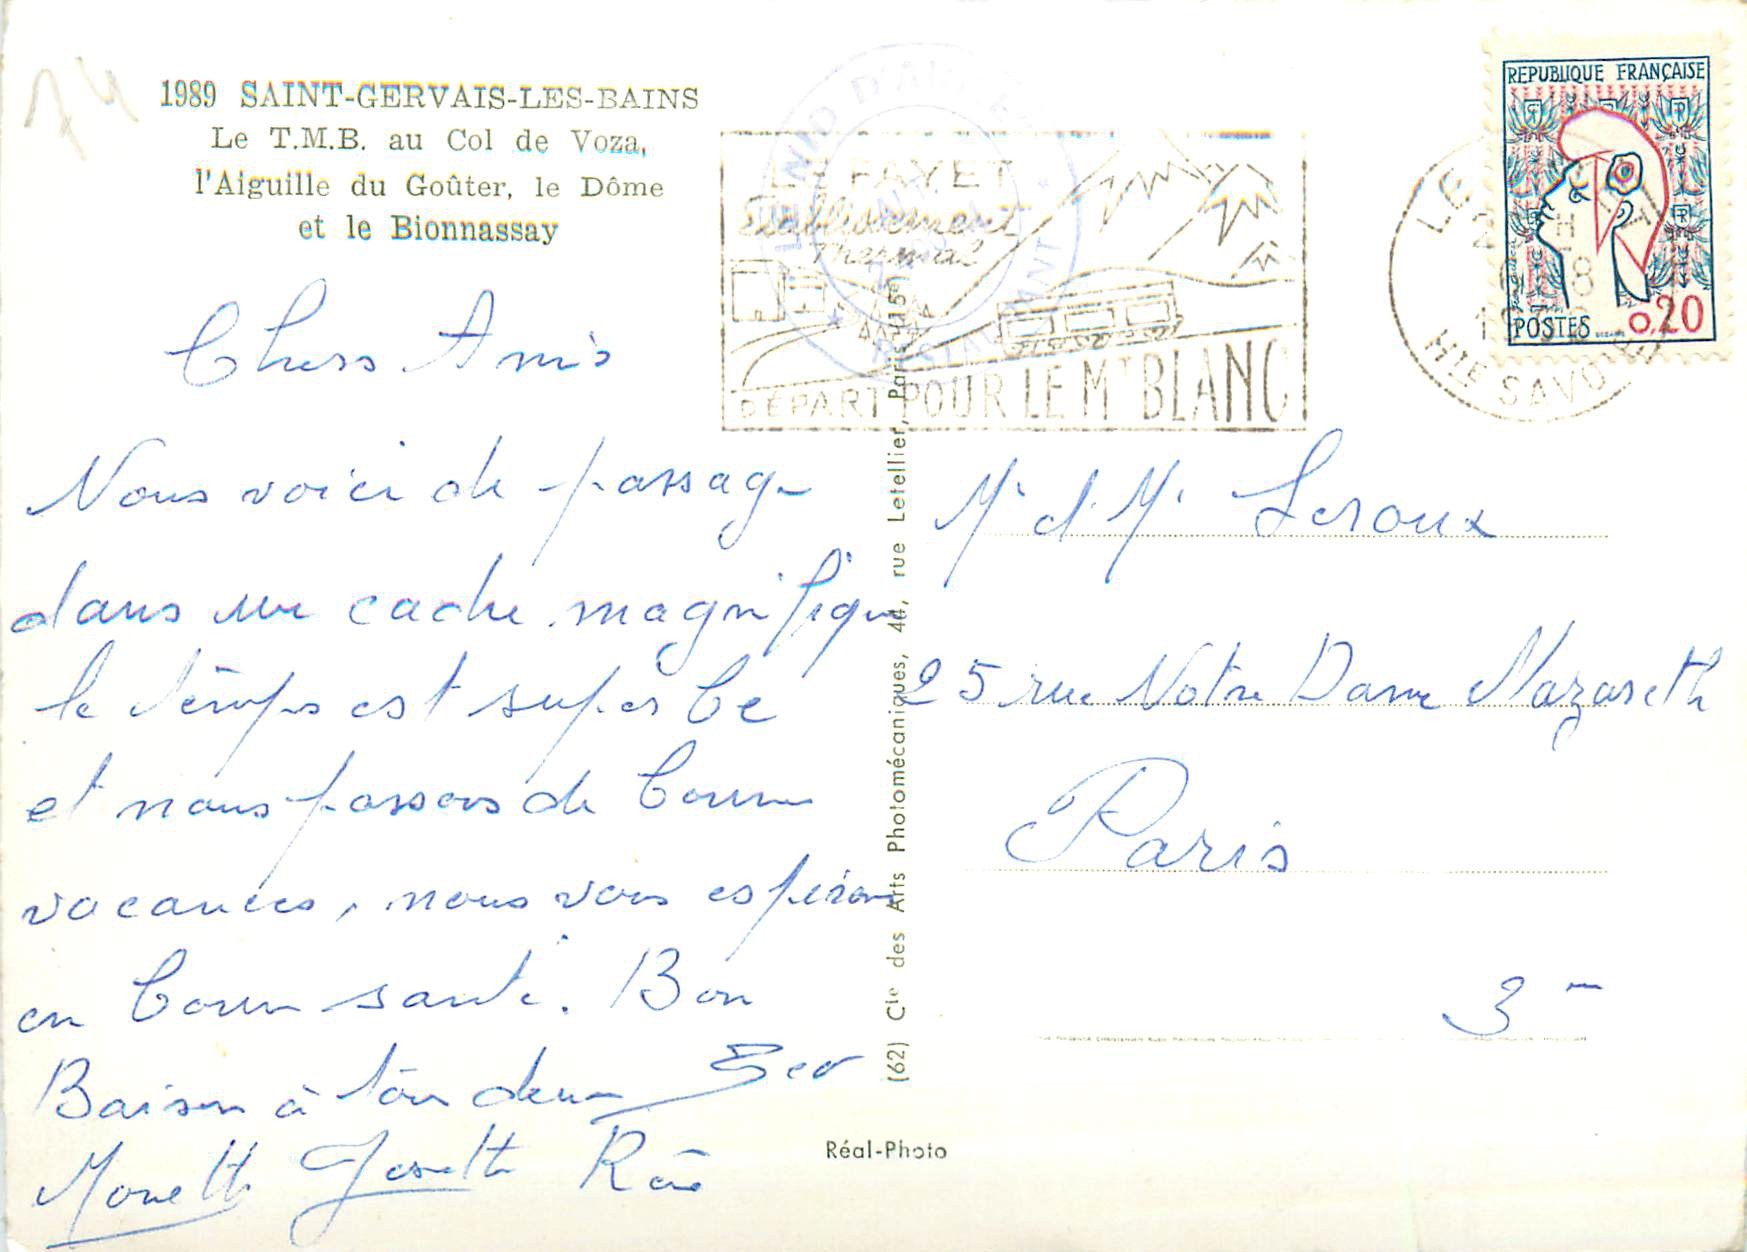 74
1989 SAINT-GERVAIS-LES-BAINS
Le T.M.B. au Col de Voza,
l'Aiguille du Goûter, le Dôme
et le Bionnassay
Chers Amis
Nous voici de passage
dans un cadre magnifique
le temps est superbe
et nous passons de bonnes
vacances, nous vous espérons
en bonne santé. Bon
Baisers à tous deux
Monette Josette
LE FAYET
Etablissement
Thermal
DÉPART POUR LE MT BLANC
LE
HTE SAVOIE
REPUBLIQUE FRANÇAISE
POSTES 0,20
(62) Cie des Arts Photomécaniques, 44, rue Letellier, Paris (15e)
Réal-Photo
Mr et Me Leroux
25 rue Notre Dame Nazareth
Paris
3